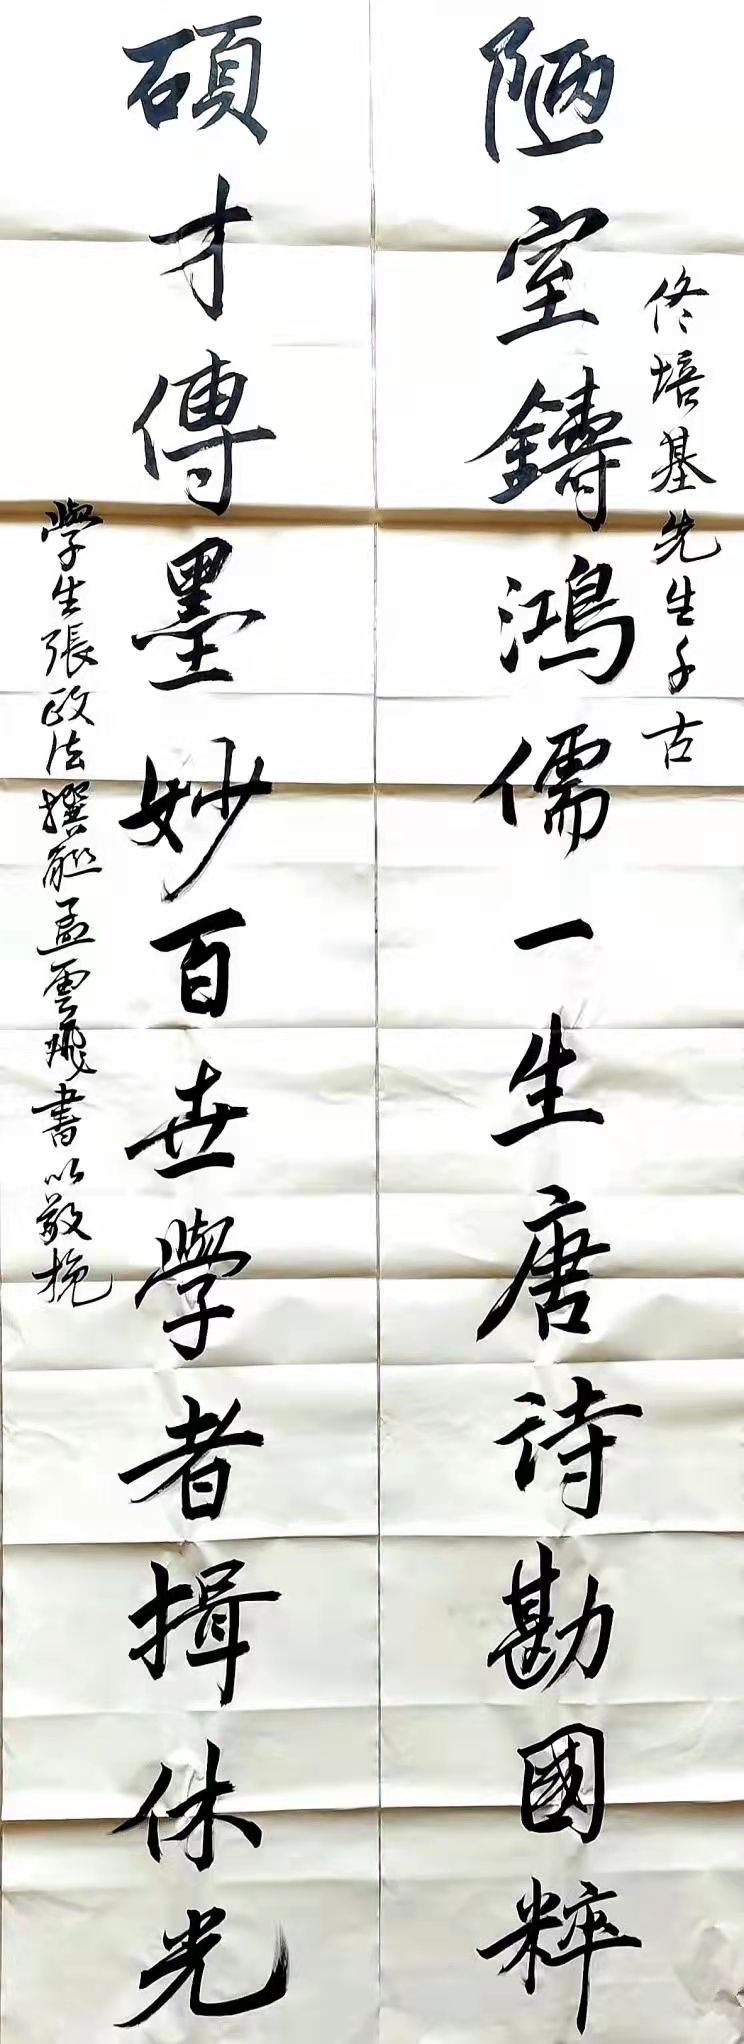 佟培基先生千古
陋室鑄鴻儒一生唐诗勘國粹
碩才傳墨妙百世學者揖休光
學生張政法撰聯孟雲飛書以敬挽